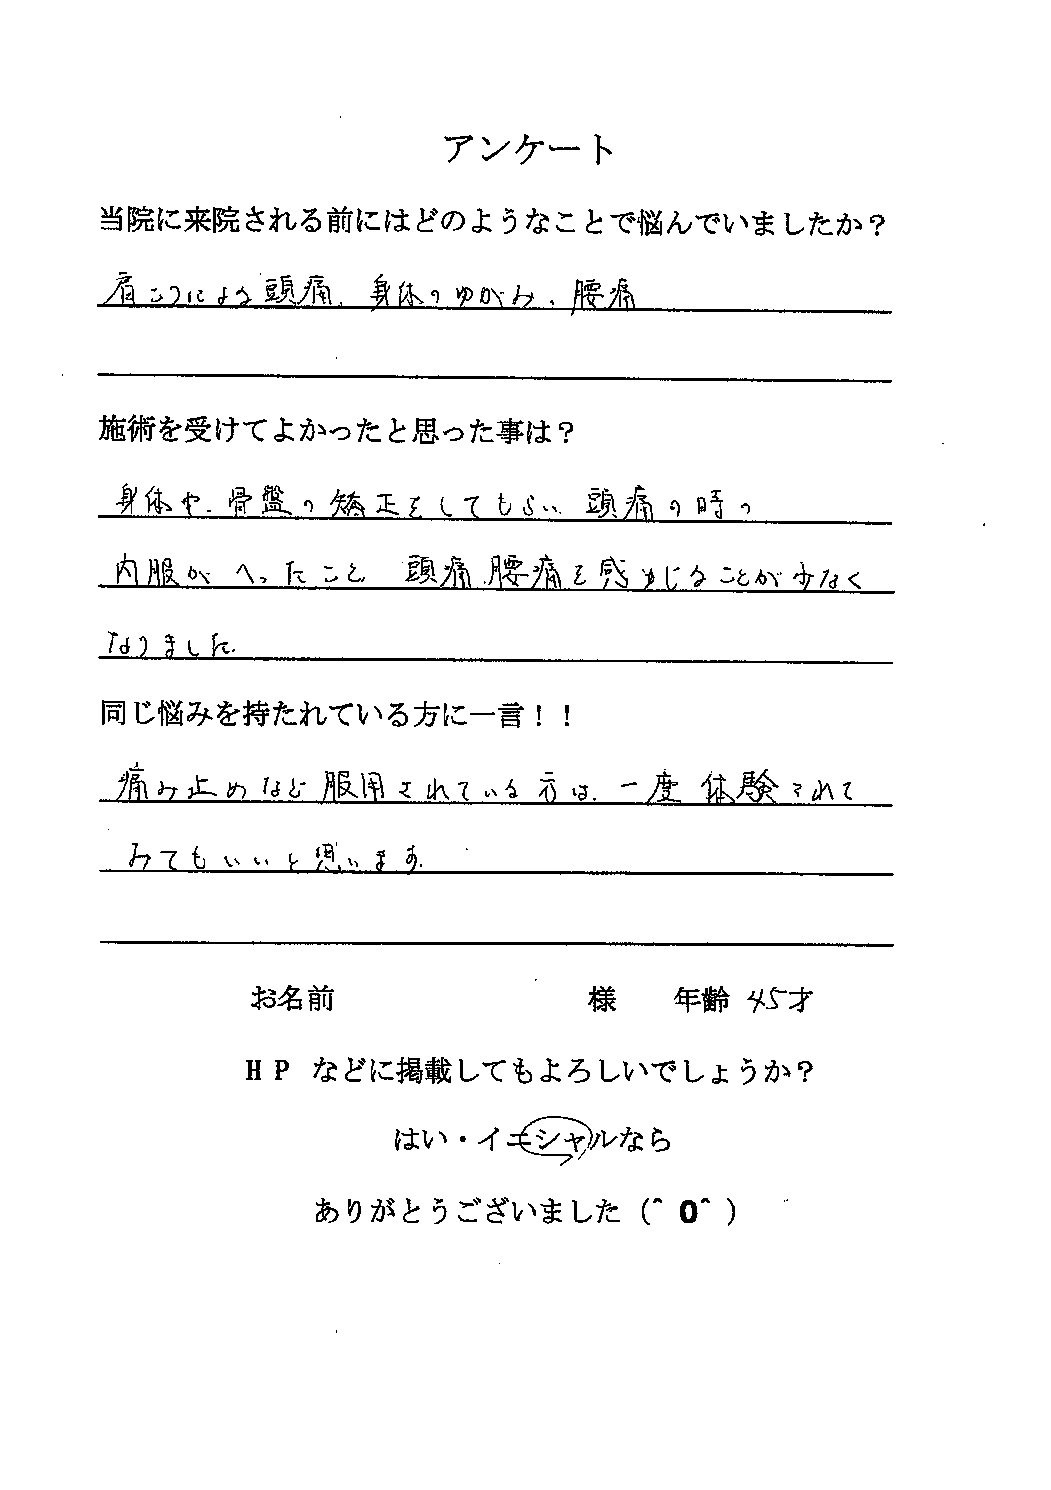 アンケート
当院に来院される前にはどのようなことで悩んでいましたか？
肩こりによる頭痛、身体のゆがみ、腰痛
施術を受けてよかったと思った事は？
身体や、骨盤の矯正をしてもらい 頭痛の時の
内服がへったこと 頭痛、腰痛を感めじることが少なく
なりました。
同じ悩みを持たれている方に一言！！
痛み止めなど服用されている方は、一度 体験されて
みてもいいと思います。
お名前 様 年齢 45才
HP などに掲載してもよろしいでしょうか？
はい・イエシャルなら
ありがとうございました（＾０＾）